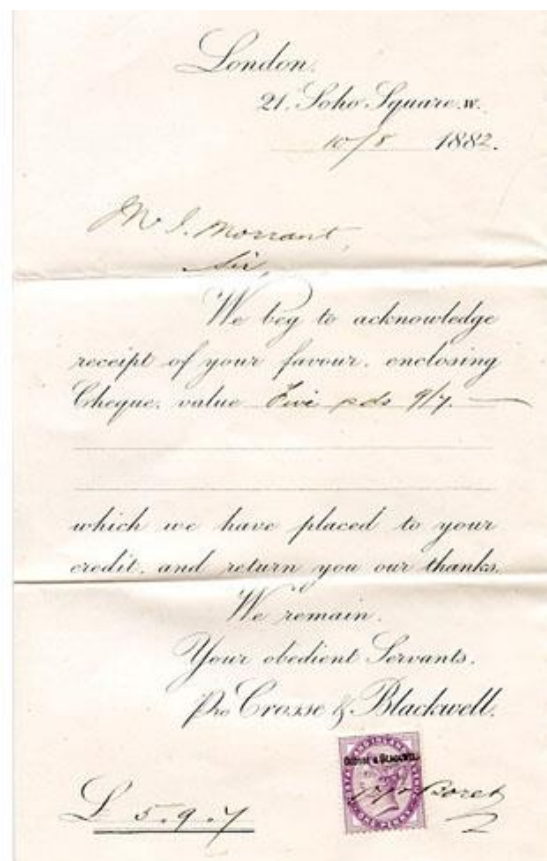 London.
21. Soho Square. W.
10/8 1882.
Mr J. Morrant,
Sir,
We beg to acknowledge
receipt of your favour, enclosing
Cheque, value Five pds 9/7.
which we have placed to your
credit, and return you our thanks.
We remain,
Your obedient Servants,
Pro Crosse & Blackwell.
CROSSE & BLACKWELL
POSTAGE AND INLAND REVENUE
ONE PENNY
£ 5.9.7